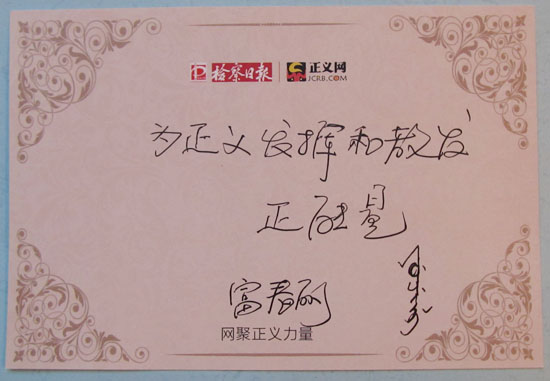 检察日报 正义网
JCRB.COM
为正义发挥和散发
正能量
富春
网聚正义力量